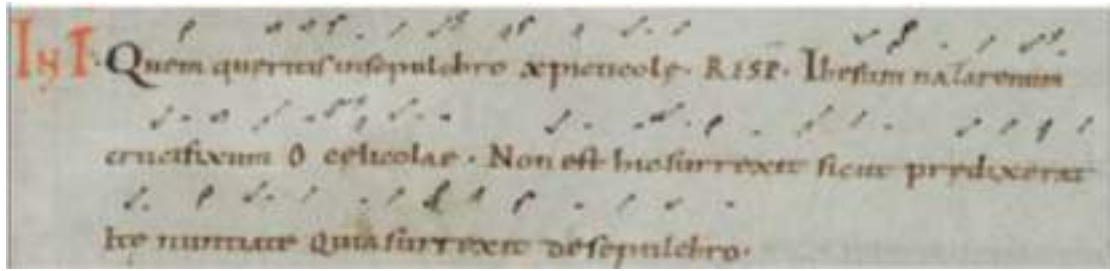 INT. Quem queritis insepulchro xpicticole. RESP. Ihesum nazarenum
crucifixum o celicolae. Non est hic surrexit sicut predixerat
ite nuntiate quia surrexit de sepulchro.